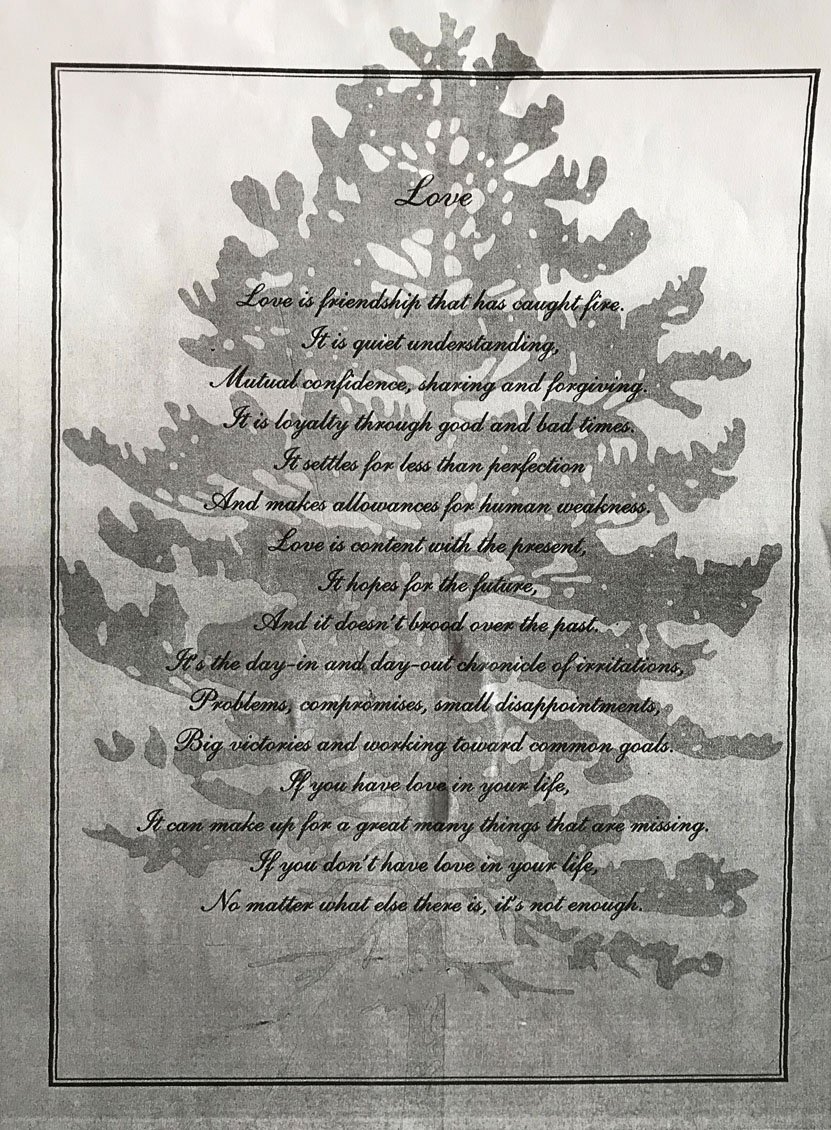 Love
Love is friendship that has caught fire.
It is quiet understanding,
Mutual confidence, sharing and forgiving.
It is loyalty through good and bad times.
It settles for less than perfection
And makes allowances for human weakness.
Love is content with the present,
It hopes for the future,
And it doesn't brood over the past.
It's the day-in and day-out chronicle of irritations,
Problems, compromises, small disappointments,
Big victories and working toward common goals.
If you have love in your life,
It can make up for a great many things that are missing.
If you don't have love in your life,
No matter what else there is, it's not enough.